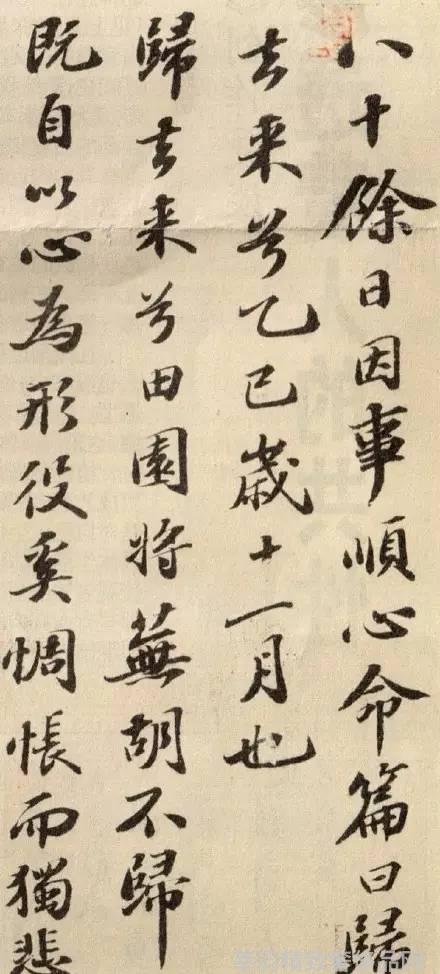 八十餘日因事順心命篇曰歸
去来兮乙巳歲十一月也
歸去来兮田園将蕪胡不歸
既自以心為形役奚惆悵而獨悲